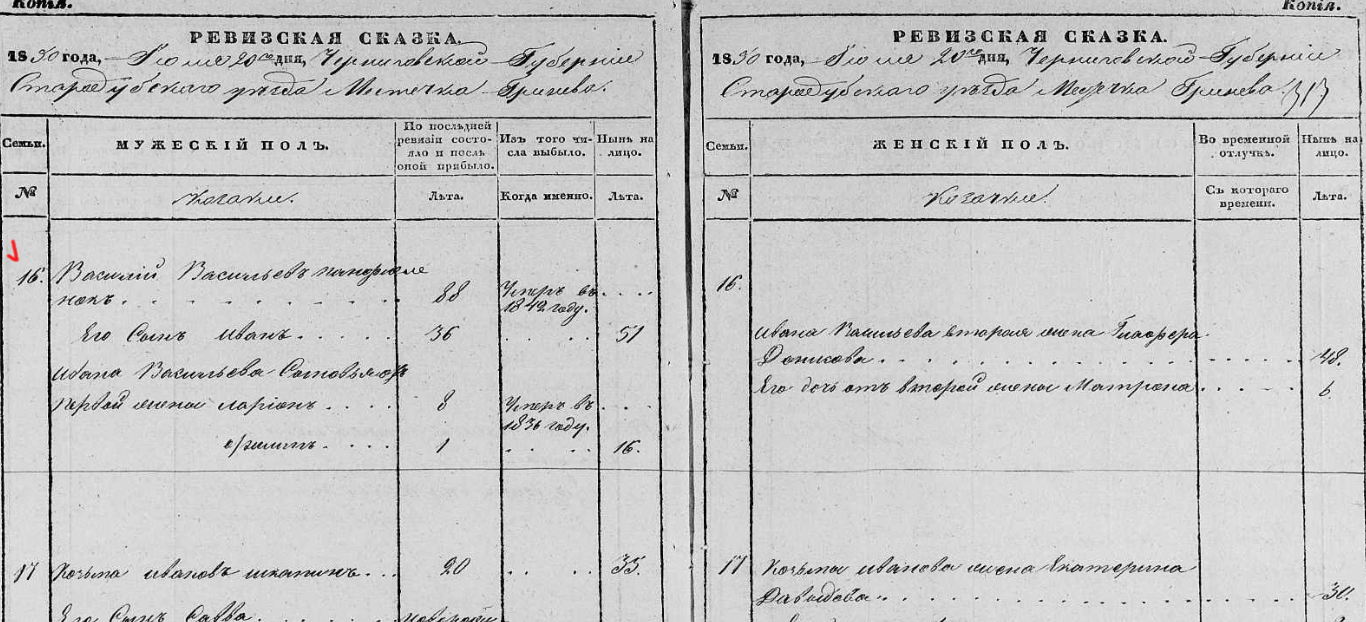 Копія.
РЕВИЗСКАЯ СКАЗКА.
1850 года, Іюля 20го дня, Черниговской Губерніи
Стародубскаго уѣзда Мѣстечка Гринева.
Семьи.
МУЖЕСКІЙ ПОЛЪ.
По послѣдней ревизіи состояло и послѣ оной прибыло.
Изъ того числа выбыло.
Нынѣ на лицо.
№
Козаки.
Лѣта.
Когда именно.
Лѣта.
16. Василій Васильевъ
нокъ 88 Умеръ въ 1842 году.
Его Сынъ Иванъ 36 51
Ивана Васильева Сыновья отъ
первой жены Ларіонъ 8 Умеръ въ 1836 году.
1 16.
17 Козьма Ивановъ 20 35.
Его Сынъ Савва
Копія.
РЕВИЗСКАЯ СКАЗКА.
1850 года, Іюля 20го дня, Черниговской Губерніи
Стародубскаго уѣзда Мѣстечка Гринева
Семьи.
ЖЕНСКІЙ ПОЛЪ.
Во временной отлучкѣ.
Нынѣ на лицо.
№
Козачки.
Съ котораго времени.
Лѣта.
16.
Ивана Васильева вторая жена Глафера
48.
Его дочь отъ второй жены Матрона 6
17 Козьма Иванова жена Екатерина
Давыдова 30.